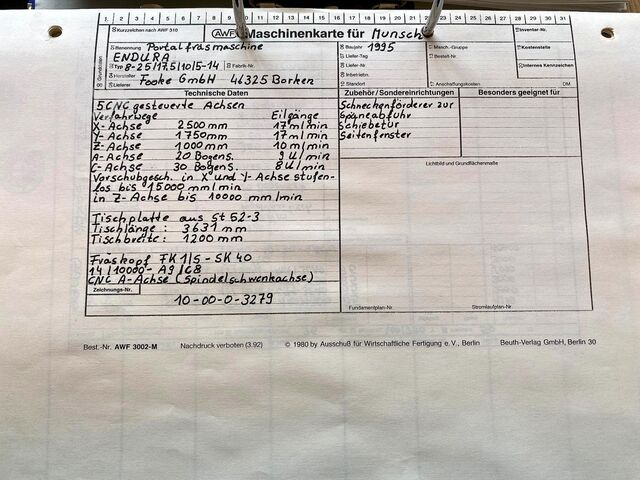 1. 2 3 4 5 6 7 8 9 10 11 12 13 14 15 16 17 18 19 20 21 22 23 24 25 26 27 28 29 30 31
Kurzzeichen nach AWF 310
AWF Maschinenkarte für Munsch
Inventar-Nr.
Benennung Portalfräsmaschine
Baujahr 1995
Masch.-Gruppe
Kostenstelle
ENDURA
Liefer-Tag
Bestell-Nr.
Typ 8-25/17.5/10/5-14
Fabrik-Nr.
Liefer-Nr.
Internes Kennzeichen
Hersteller
Inbetriebn.
Lieferer Fooke GmbH 46325 Borken
Standort
Anschaffungskosten DM
Grunddaten
Technische Daten
Zubehör/Sondereinrichtungen
Besonders geeignet für
5 CNC gesteuerte Achsen
Verfahrwege Eilgänge
X-Achse 2500 mm 17 m/min
Y-Achse 1750 mm 17 m/min
Z-Achse 1000 mm 10 m/min
A-Achse 20 Bogens. 9 U/min
C-Achse 30 Bogens. 8 U/min
Vorschubgesch. in X und Y-Achse stufen-
los bis 15000 mm/min
in Z-Achse bis 10000 mm/min
Tischplatte aus St 52-3
Tischlänge: 3631 mm
Tischbreite: 1200 mm
Fräskopf FK 1/5 - SK 40
14/10000 - A9/C8
CNC A-Achse (Spindelschwenkachse)
Zeichnungs-Nr.
10-00-0-3279
Schneckenförderer zur
Späneabfuhr
Schiebetür
Seitenfenster
Lichtbild und Grundflächenmaße
Fundamentplan-Nr.
Stromlaufplan-Nr.
Best.-Nr. AWF 3002-M Nachdruck verboten (3.92) © 1980 by Ausschuß für Wirtschaftliche Fertigung e.V., Berlin Beuth-Verlag GmbH, Berlin 30